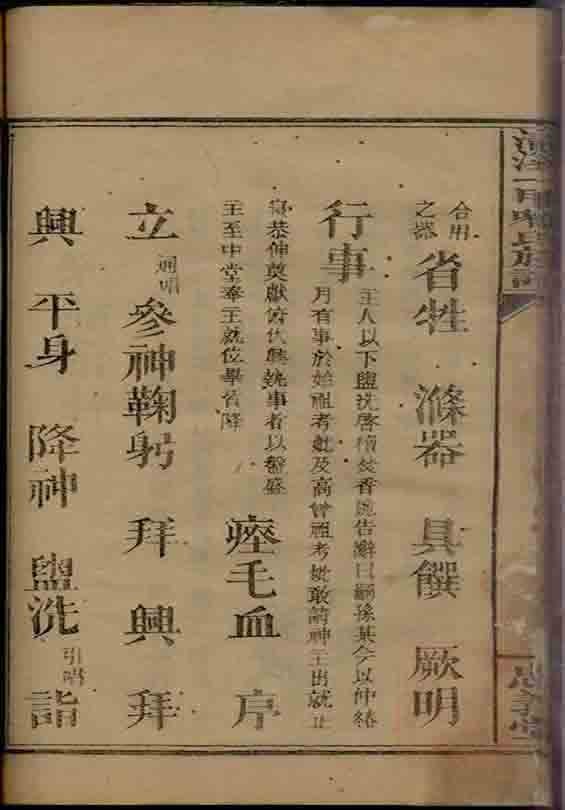 氏族譜
合用
之器
省牲 滌器 具饌 厥明
行事
主人以下盥洗啓櫝焚香跪告辭曰嗣孫某今以仲春
月有事於始祖考妣及高曾祖考妣敢請神主出就正
寢恭伸奠獻俯伏興執事者以盤盛
主至中堂奉主就位畢皆降
瘞毛血 序
立 通唱 參神鞠躬 拜 興 拜
興 平身 降神 盥洗 引唱 詣